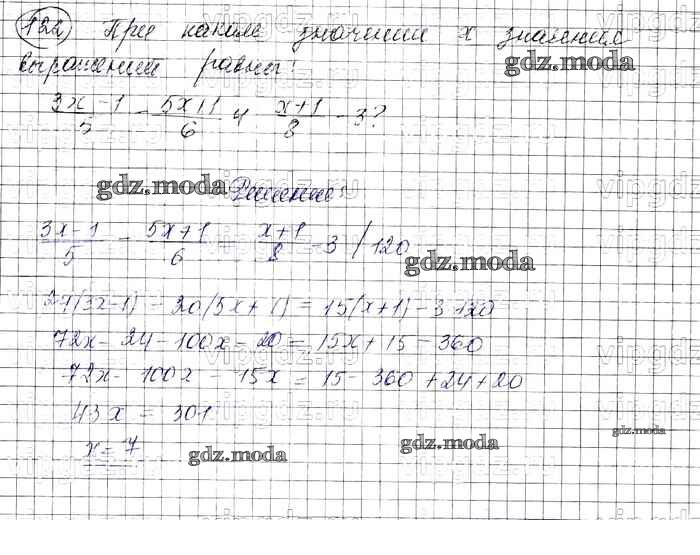 122 При каком значении x значения
gdz.moda
выражений равны:
3x - 1 / 5 - 5x+1 / 6 и x+1 / 8 - 3?
gdz.moda Решение
3x-1 / 5 - 5x+1 / 6 = x+1 / 8 - 3 / 120
gdz.moda
24(3x-1) - 20(5x+1) = 15(x+1) - 3·120
72x - 24 - 100x - 20 = 15x + 15 - 360
72x - 100x - 15x = 15 - 360 + 24 + 20
43x = 301
x = 7
gdz.moda gdz.moda gdz.moda